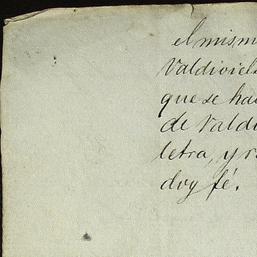 el mism
Valdiviels
que se ha
de Valdi
letra, y r
doy fé.